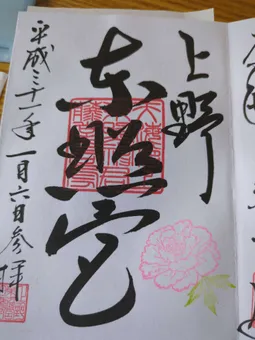 上野
東照宮
平成三十一年一月六日参拝